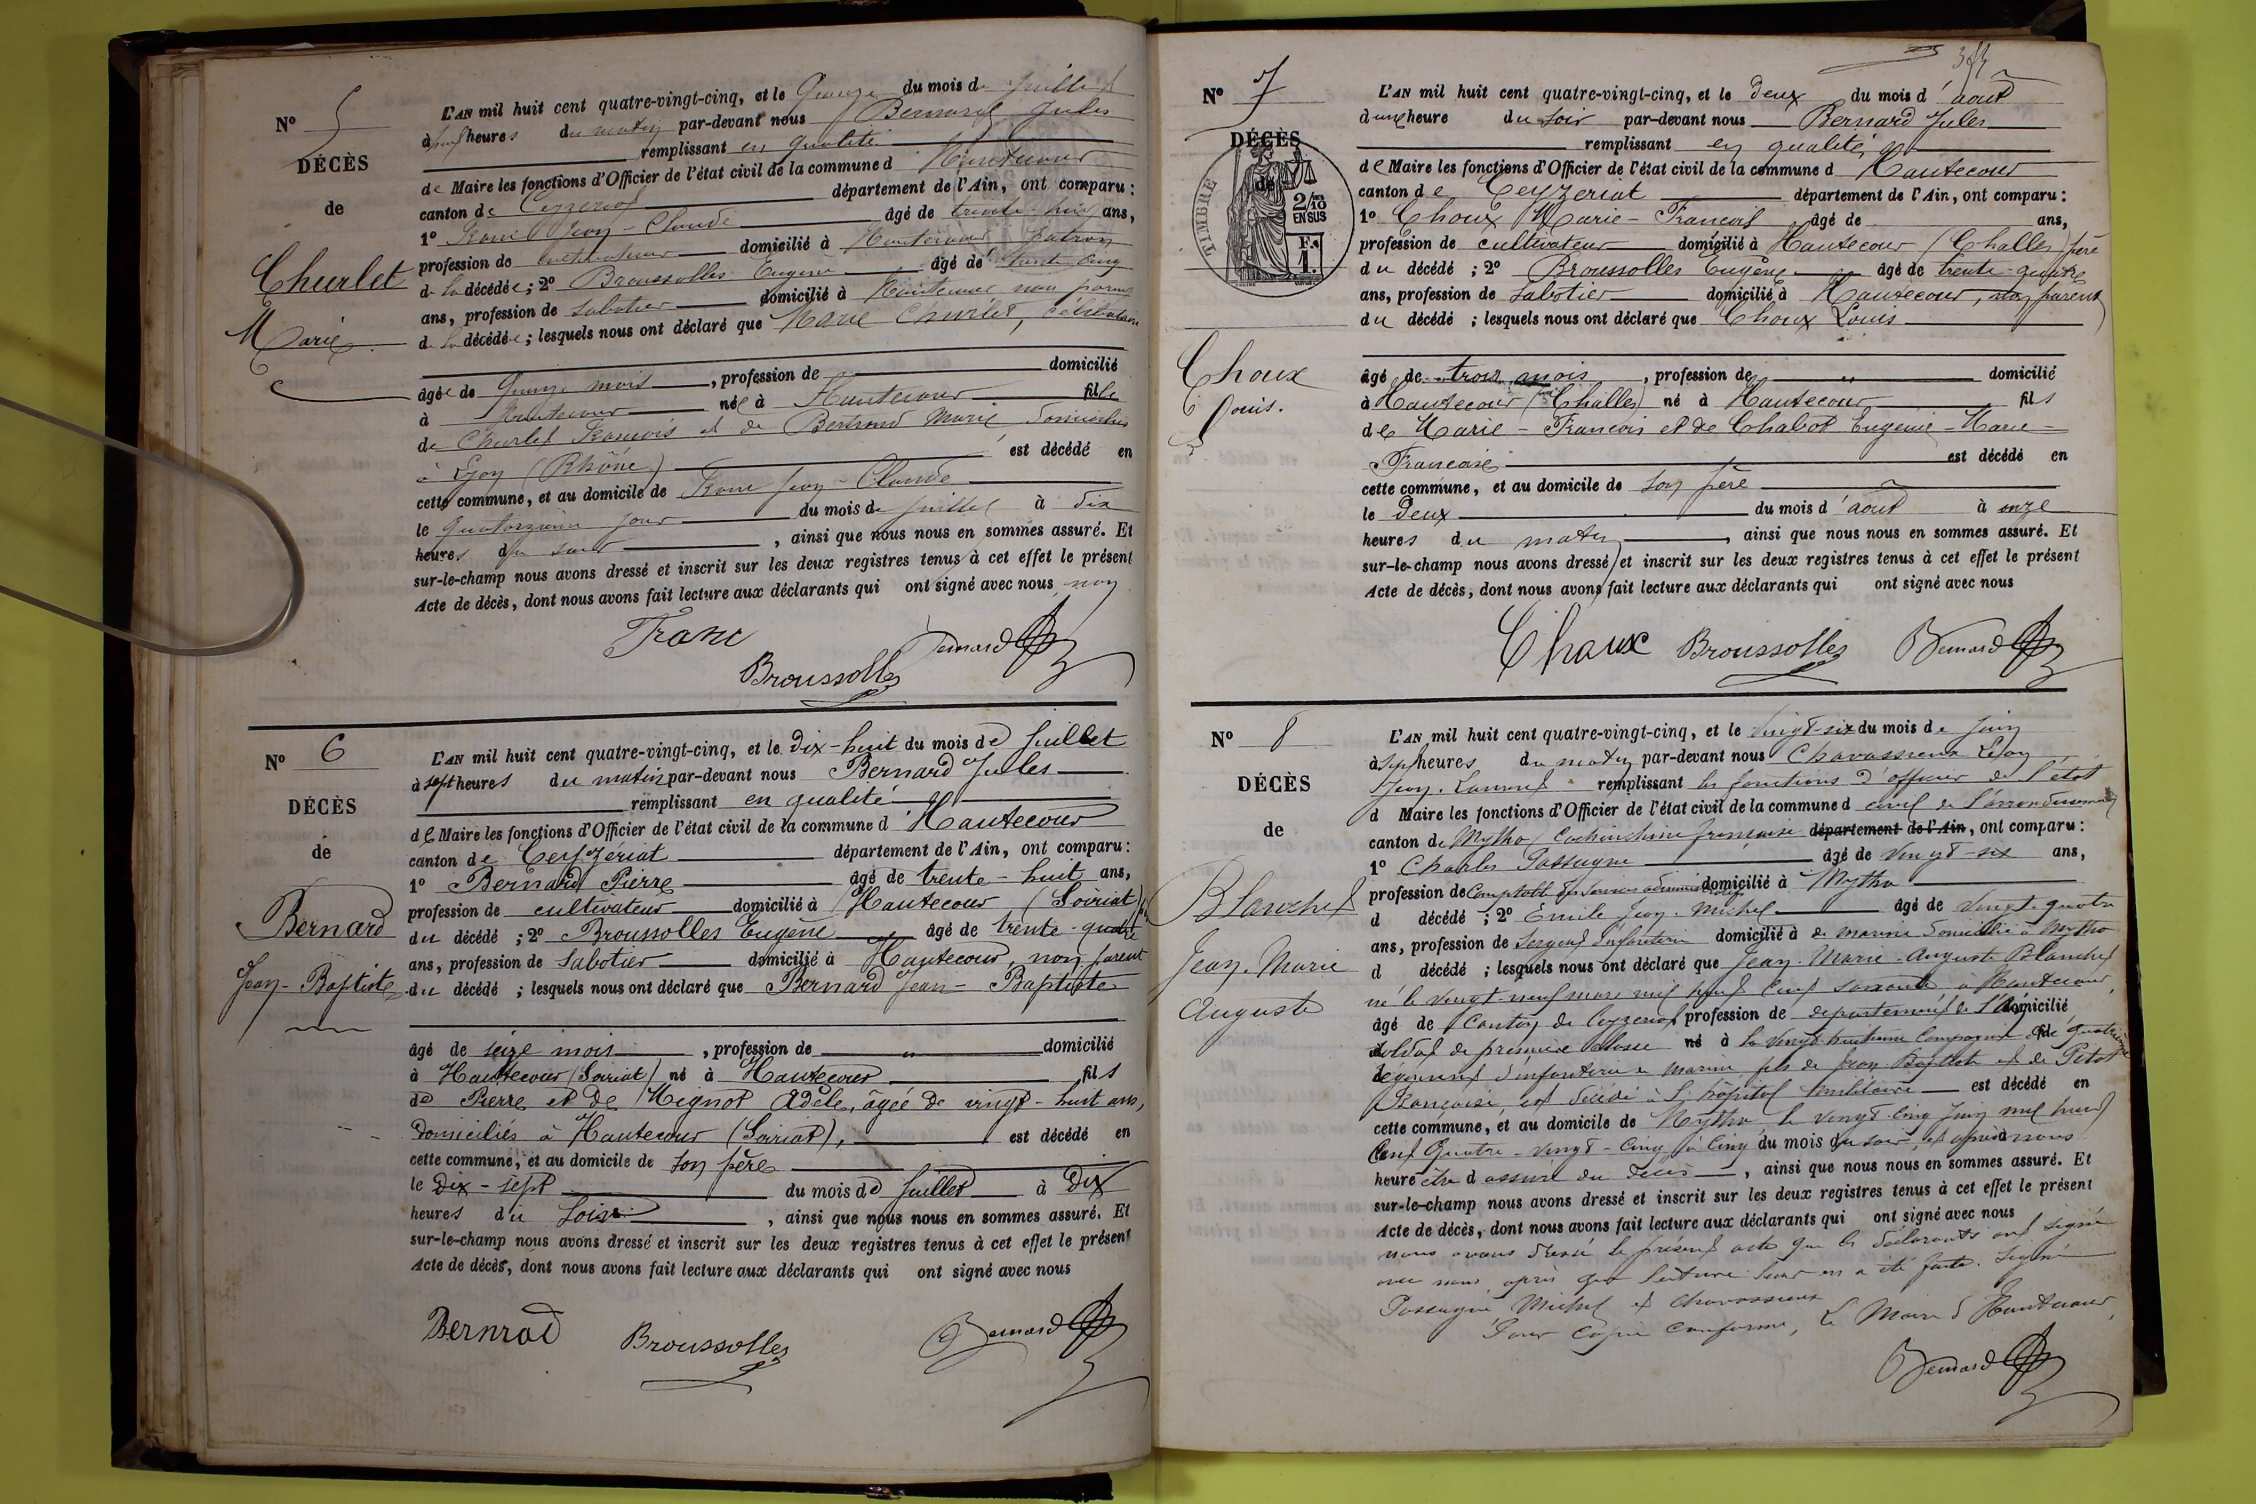 N° 5
DÉCÈS
de
Churlet
Marie
L'AN mil huit cent quatre-vingt-cinq, et le Quinze du mois de juillet
à neuf heures du matin par-devant nous Bernard Jules
remplissant en qualité
de Maire les fonctions d'Officier de l'état civil de la commune d Hautecour
canton de Ceyzeriat département de l'Ain, ont comparu :
1° Franc Jean-Claude âgé de trente-huit ans,
profession de cultivateur domicilié à Hautecour patron
de la décédée ; 2° Broussolles Eugène âgé de trente cinq
ans, profession de sabotier domicilié à Hautecour non parent
de la décédée ; lesquels nous ont déclaré que Marie Churlet, célibataire
âgée de quinze mois, profession de domicilié
à Hautecour née à Hautecour fille
de Churlet François et de Bertrand Marie domiciliés
à Lyon (Rhône) est décédé en
cette commune, et au domicile de Franc Jean-Claude
le quatorzième jour du mois de juillet à dix
heures du soir, ainsi que nous nous en sommes assuré. Et
sur-le-champ nous avons dressé et inscrit sur les deux registres tenus à cet effet le présent
Acte de décès, dont nous avons fait lecture aux déclarants qui ont signé avec nous
Franc
Broussolles
Bernard
N° 6
DÉCÈS
de
Bernard
Jean-Baptiste
L'AN mil huit cent quatre-vingt-cinq, et le dix-huit du mois de Juillet
à sept heures du matin par-devant nous Bernard Jules
remplissant en qualité
de Maire les fonctions d'Officier de l'état civil de la commune d'Hautecour
canton de Ceyzériat département de l'Ain, ont comparu :
1° Bernard Pierre âgé de trente-huit ans,
profession de cultivateur domicilié à Hautecour (Soiriat)
du décédé ; 2° Broussolles Eugène âgé de trente-quatre
ans, profession de sabotier domicilié à Hautecour, non parent
du décédé ; lesquels nous ont déclaré que Bernard Jean-Baptiste
âgé de seize mois, profession de " domicilié
à Hautecour (Soiriat) né à Hautecour fils
de Pierre et de Mignot Adèle, âgée de vingt-huit ans,
domiciliés à Hautecour (Soiriat), est décédé en
cette commune, et au domicile de son père
le dix-sept du mois de Juillet à dix
heures du soir, ainsi que nous nous en sommes assuré. Et
sur-le-champ nous avons dressé et inscrit sur les deux registres tenus à cet effet le présent
Acte de décès, dont nous avons fait lecture aux déclarants qui ont signé avec nous
Bernrad
Broussolles
Bernard
N° 7
DÉCÈS
de
TIMBRE
2/10
EN SUS
F.
1.
Choux
Louis.
L'AN mil huit cent quatre-vingt-cinq, et le deux du mois d'août
d'une heure du soir par-devant nous Bernard Jules
remplissant en qualité
de Maire les fonctions d'Officier de l'état civil de la commune d Hautecour
canton de Ceyzeriat département de l'Ain, ont comparu :
1° Choux Marie-François âgé de ans,
profession de cultivateur domicilié à Hautecour (Challes) père
du décédé ; 2° Broussolles Eugène âgé de trente-quatre
ans, profession de sabotier domicilié à Hautecour, non parent
du décédé ; lesquels nous ont déclaré que Choux Louis
âgé de trois mois, profession de " domicilié
à Hautecour (Challes) né à Hautecour fils
de Marie-François et de Chabot Eugénie-Marie-
Françoise est décédé en
cette commune, et au domicile de son père
le deux du mois d'août à onze
heures du matin, ainsi que nous nous en sommes assuré. Et
sur-le-champ nous avons dressé et inscrit sur les deux registres tenus à cet effet le présent
Acte de décès, dont nous avons fait lecture aux déclarants qui ont signé avec nous
Choux Broussolles Bernard
N° 8
DÉCÈS
de
Blanchet
Jean-Marie
Auguste
L'AN mil huit cent quatre-vingt-cinq, et le vingt-six du mois de juin
à sept heures du matin par-devant nous Chavassieux Léon
Jean-Laurent remplissant les fonctions d'officier de l'état
d Maire les fonctions d'Officier de l'état civil de la commune d civil de l'arrondissement
canton de Mytho Cochinchine française département de l'Ain, ont comparu :
1° Charles Passugne âgé de vingt-six ans,
profession de Comptable des services administratifs domicilié à Mytho
d décédé ; 2° Emile Jean-Michel âgé de vingt-quatre
ans, profession de Sergent d'infanterie domicilié à de marine domicilié à Mytho
d décédé ; lesquels nous ont déclaré que Jean-Marie-Auguste Blanchet
né le vingt-neuf mars mil huit cent soixante à Hautecour,
âgé de canton de Ceyzeriat profession de département de l'Ain domicilié
soldat de première classe né à la vingt-huitième compagnie du quatrième
régiment d'infanterie de marine fils de Jean-Baptiste et de Pitot
Françoise, est décédé à l'hôpital militaire est décédé en
cette commune, et au domicile de Mytho le vingt-cinq juin mil huit
cent quatre-vingt-cinq à cinq du mois du soir, et après nous
heure être d assuré du décès, ainsi que nous nous en sommes assuré. Et
sur-le-champ nous avons dressé et inscrit sur les deux registres tenus à cet effet le présent
Acte de décès, dont nous avons fait lecture aux déclarants qui ont signé avec nous
nous avons dressé le présent acte que les déclarants ont signé
avec nous après que lecture leur en a été faite. Signé
Passugne Michel et Chavassieux
Pour copie conforme, Le Maire d'Hautecour,
Bernard